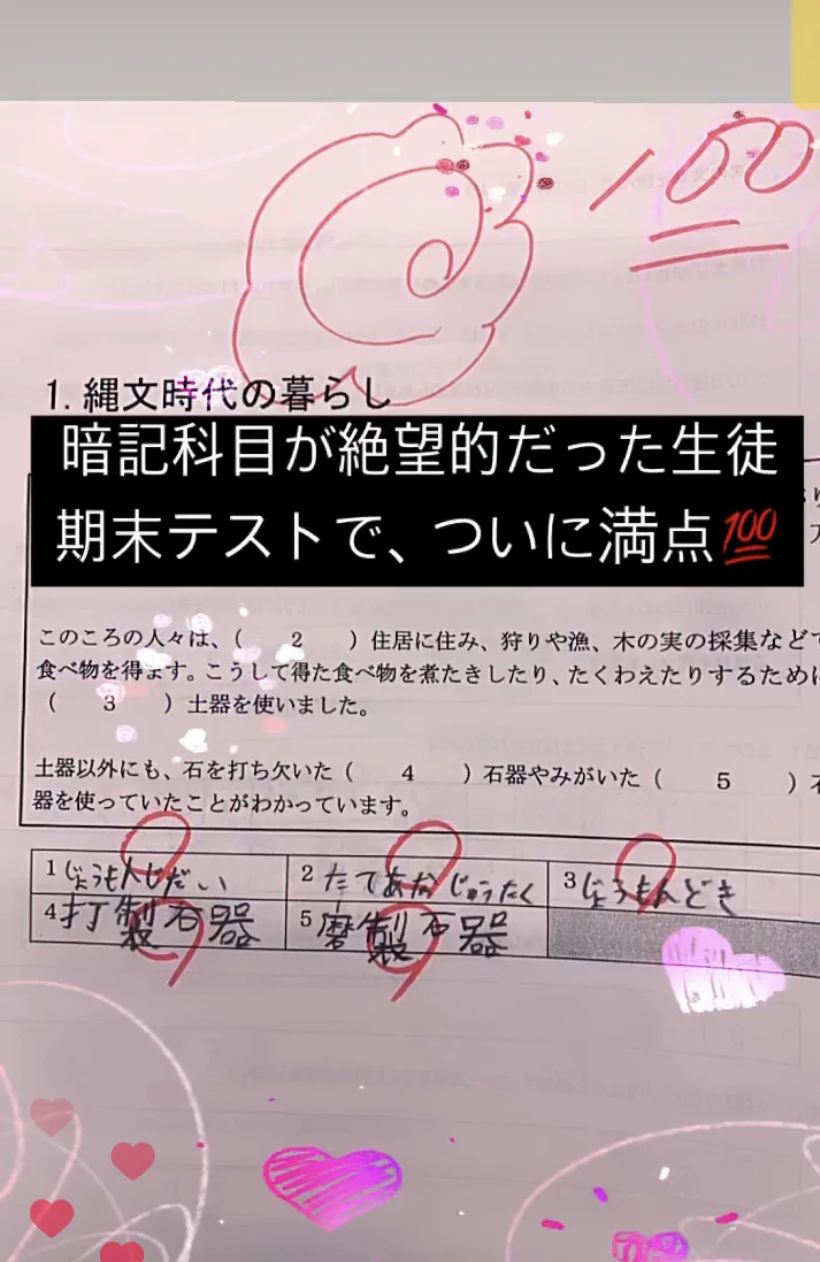 100
1. 縄文時代の暮らし
暗記科目が絶望的だった生徒
期末テストで、ついに満点💯
このころの人々は、（　2　）住居に住み、狩りや漁、木の実の採集などで
食べ物を得ます。こうして得た食べ物を煮たきしたり、たくわえたりするために
（　3　）土器を使いました。
土器以外にも、石を打ち欠いた（　4　）石器やみがいた（　5　）石
器を使っていたことがわかっています。
1 じょうもんじだい 2 たてあなじゅうたく 3 じょうもんどき
4 打製石器 5 磨製石器